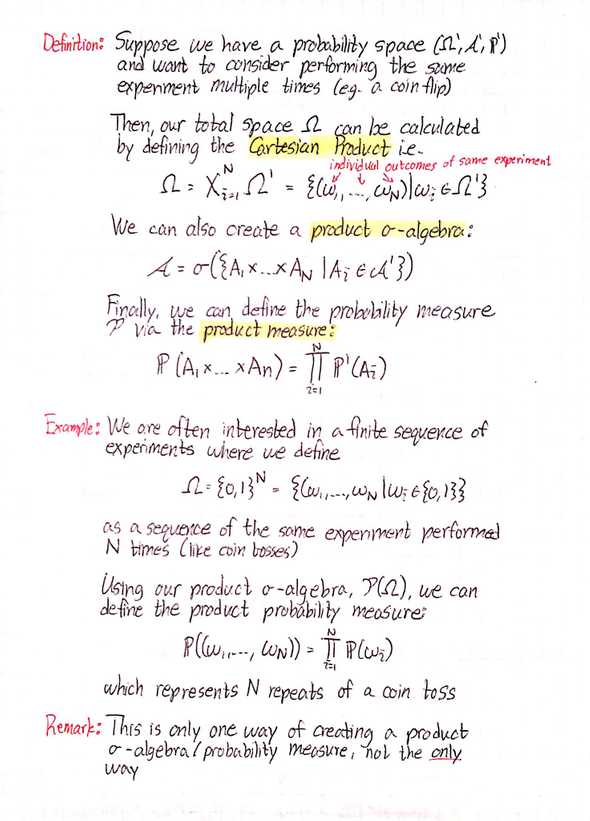 Definition: Suppose we have a probability space (Ω', 𝒜', ℙ')
and want to consider performing the same
experiment multiple times (eg. a coin flip)
Then, our total space Ω can be calculated
by defining the Cartesian Product i.e.
individual outcomes of same experiment
Ω = X_{i=1}^{N} Ω' = {(ω₁, ..., ω_N) | ω_i ∈ Ω'}
We can also create a product σ-algebra:
𝒜 = σ({A₁ x ... x A_N | A_i ∈ 𝒜'})
Finally, we can define the probability measure
P via the product measure:
ℙ(A₁ x ... x An) = ∏_{i=1}^{N} ℙ'(A_i)
Example: We are often interested in a finite sequence of
experiments where we define
Ω = {0,1}^N = {(ω₁, ..., ω_N | ω_i ∈ {0,1}}
as a sequence of the same experiment performed
N times (like coin tosses)
Using our product σ-algebra, P(Ω), we can
define the product probability measure:
ℙ((ω₁, ..., ω_N)) = ∏_{i=1}^{N} ℙ(ω_i)
which represents N repeats of a coin toss
Remark: This is only one way of creating a product
σ-algebra/probability measure, not the only
way